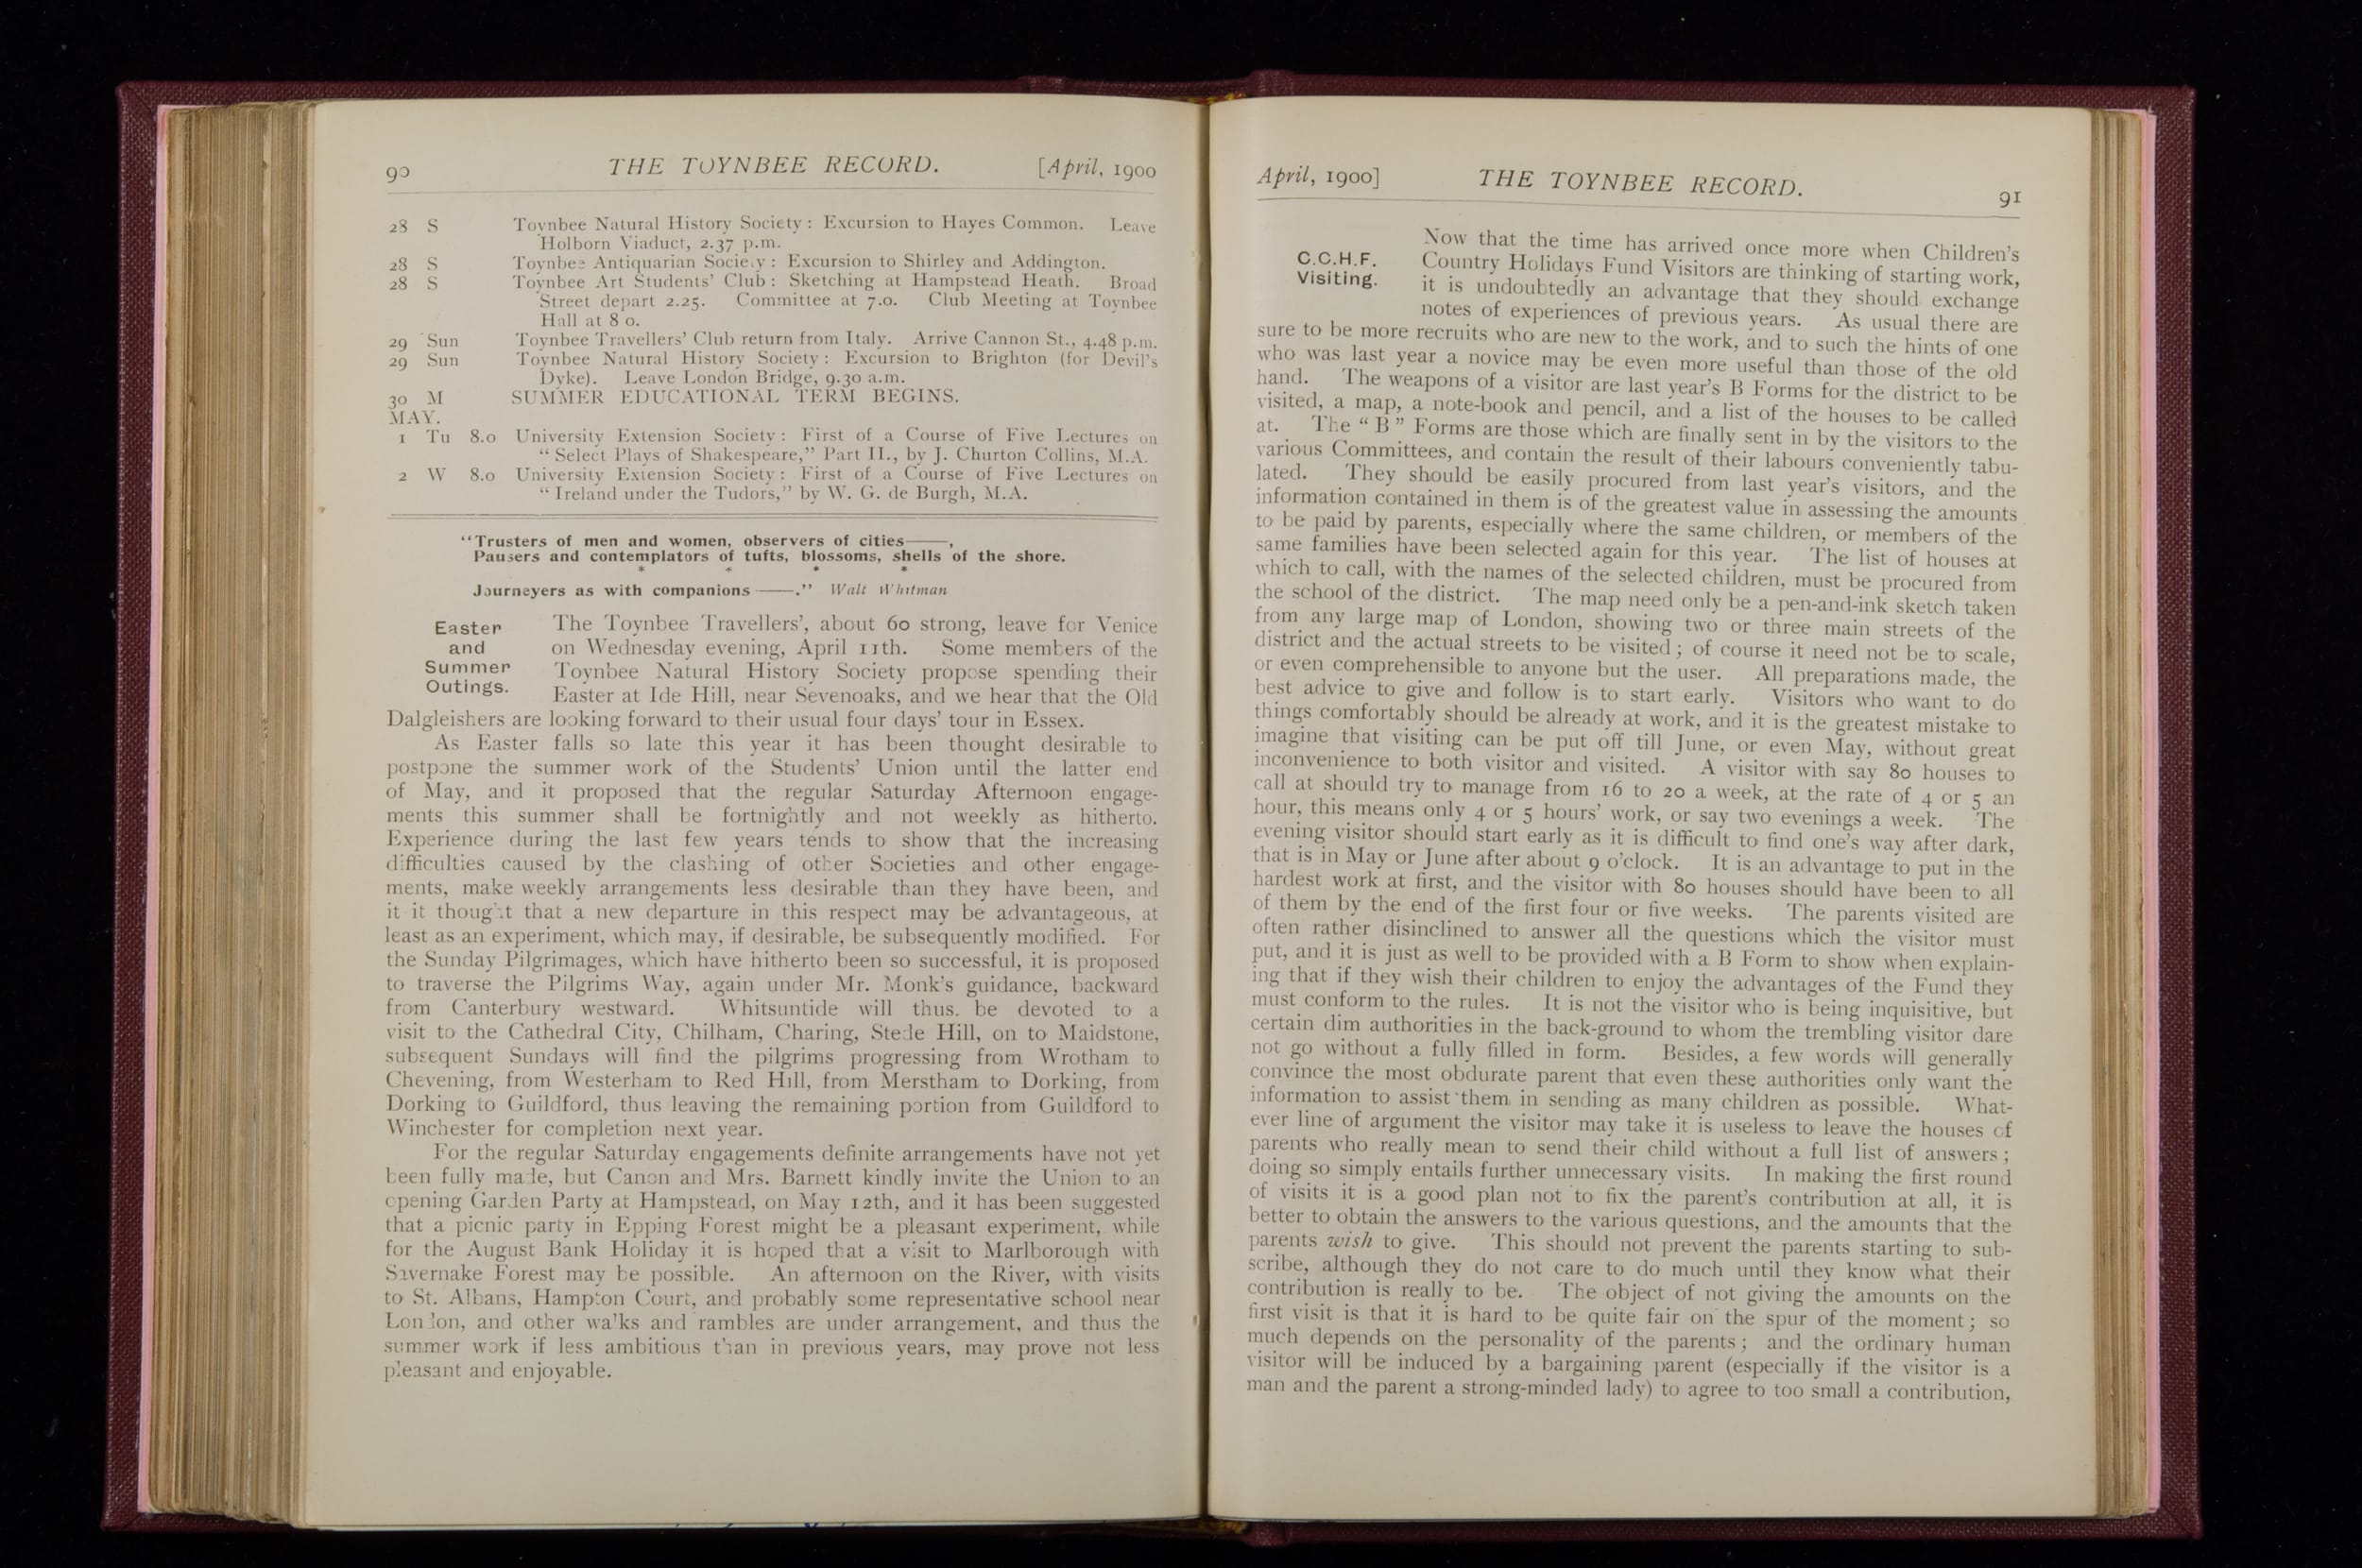 90 THE TOYNBEE RECORD. [April, 1900
28 S Toynbee Natural History Society : Excursion to Hayes Common. Leave
Holborn Viaduct, 2.37 p.m.
28 S Toynbee Antiquarian Society : Excursion to Shirley and Addington.
28 S Toynbee Art Students' Club : Sketching at Hampstead Heath. Broad
Street depart 2.25. Committee at 7.0. Club Meeting at Toynbee
Hall at 8 0.
29 Sun Toynbee Travellers' Club return from Italy. Arrive Cannon St., 4.48 p.m.
29 Sun Toynbee Natural History Society : Excursion to Brighton (for Devil's
Dyke). Leave London Bridge, 9.30 a.m.
30 M SUMMER EDUCATIONAL TERM BEGINS.
MAY.
1 Tu 8.0 University Extension Society : First of a Course of Five Lectures on
“ Select Plays of Shakespeare,” Part II., by J. Churton Collins, M.A.
2 W 8.0 University Extension Society : First of a Course of Five Lectures on
“ Ireland under the Tudors,” by W. G. de Burgh, M.A.
“Trusters of men and women, observers of cities——,
Pausers and contemplators of tufts, blossoms, shells of the shore.
* * * *
Journeyers as with companions ——.” Walt Whitman
Easter
and
Summer
Outings.
The Toynbee Travellers', about 60 strong, leave for Venice
on Wednesday evening, April 11th. Some members of the
Toynbee Natural History Society propose spending their
Easter at Ide Hill, near Sevenoaks, and we hear that the Old
Dalgleishers are looking forward to their usual four days' tour in Essex.
As Easter falls so late this year it has been thought desirable to
postpone the summer work of the Students' Union until the latter end
of May, and it proposed that the regular Saturday Afternoon engage-
ments this summer shall be fortnightly and not weekly as hitherto.
Experience during the last few years tends to show that the increasing
difficulties caused by the clashing of other Societies and other engage-
ments, make weekly arrangements less desirable than they have been, and
it it thought that a new departure in this respect may be advantageous, at
least as an experiment, which may, if desirable, be subsequently modified. For
the Sunday Pilgrimages, which have hitherto been so successful, it is proposed
to traverse the Pilgrims Way, again under Mr. Monk's guidance, backward
from Canterbury westward. Whitsuntide will thus. be devoted to a
visit to the Cathedral City, Chilham, Charing, Stede Hill, on to Maidstone,
subsequent Sundays will find the pilgrims progressing from Wrotham to
Chevening, from Westerham to Red Hill, from Merstham to Dorking, from
Dorking to Guildford, thus leaving the remaining portion from Guildford to
Winchester for completion next year.
For the regular Saturday engagements definite arrangements have not yet
been fully made, but Canon and Mrs. Barnett kindly invite the Union to an
opening Garden Party at Hampstead, on May 12th, and it has been suggested
that a picnic party in Epping Forest might be a pleasant experiment, while
for the August Bank Holiday it is hoped that a visit to Marlborough with
Savernake Forest may be possible. An afternoon on the River, with visits
to St. Albans, Hampton Court, and probably some representative school near
London, and other walks and rambles are under arrangement, and thus the
summer work if less ambitious than in previous years, may prove not less
pleasant and enjoyable.
April, 1900] THE TOYNBEE RECORD. 91
C.C.H.F.
Visiting.
Now that the time has arrived once more when Children's
Country Holidays Fund Visitors are thinking of starting work,
it is undoubtedly an advantage that they should exchange
notes of experiences of previous years. As usual there are
sure to be more recruits who are new to the work, and to such the hints of one
who was last year a novice may be even more useful than those of the old
hand. The weapons of a visitor are last year's B Forms for the district to be
visited, a map, a note-book and pencil, and a list of the houses to be called
at. The “ B ” Forms are those which are finally sent in by the visitors to the
various Committees, and contain the result of their labours conveniently tabu-
lated. They should be easily procured from last year's visitors, and the
information contained in them is of the greatest value in assessing the amounts
to be paid by parents, especially where the same children, or members of the
same families have been selected again for this year. The list of houses at
which to call, with the names of the selected children, must be procured from
the school of the district. The map need only be a pen-and-ink sketch taken
from any large map of London, showing two or three main streets of the
district and the actual streets to be visited ; of course it need not be to scale,
or even comprehensible to anyone but the user. All preparations made, the
best advice to give and follow is to start early. Visitors who want to do
things comfortably should be already at work, and it is the greatest mistake to
imagine that visiting can be put off till June, or even May, without great
inconvenience to both visitor and visited. A visitor with say 80 houses to
call at should try to manage from 16 to 20 a week, at the rate of 4 or 5 an
hour, this means only 4 or 5 hours' work, or say two evenings a week. The
evening visitor should start early as it is difficult to find one's way after dark,
that is in May or June after about 9 o'clock. It is an advantage to put in the
hardest work at first, and the visitor with 80 houses should have been to all
of them by the end of the first four or five weeks. The parents visited are
often rather disinclined to answer all the questions which the visitor must
put, and it is just as well to be provided with a B Form to show when explain-
ing that if they wish their children to enjoy the advantages of the Fund they
must conform to the rules. It is not the visitor who is being inquisitive, but
certain dim authorities in the back-ground to whom the trembling visitor dare
not go without a fully filled in form. Besides, a few words will generally
convince the most obdurate parent that even these authorities only want the
information to assist them in sending as many children as possible. What-
ever line of argument the visitor may take it is useless to leave the houses of
parents who really mean to send their child without a full list of answers ;
doing so simply entails further unnecessary visits. In making the first round
of visits it is a good plan not to fix the parent's contribution at all, it is
better to obtain the answers to the various questions, and the amounts that the
parents wish to give. This should not prevent the parents starting to sub-
scribe, although they do not care to do much until they know what their
contribution is really to be. The object of not giving the amounts on the
first visit is that it is hard to be quite fair on the spur of the moment ; so
much depends on the personality of the parents ; and the ordinary human
visitor will be induced by a bargaining parent (especially if the visitor is a
man and the parent a strong-minded lady) to agree to too small a contribution,